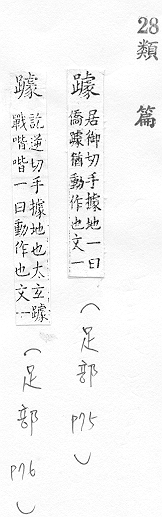 28類篇
躆 居御切手據地一曰
僑躆猶動作也文一
(足部 P75)
躆 訖逆切手據地也太玄躆
戰喈喈一曰動作也文一
(足部 P76)